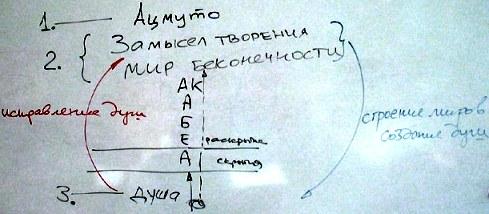 1. Ацмуто
2. Замысел творения
мир бесконечности
АК
А
Б
Е раскрытие
А скрытия
3. душа
исправление души
строение миров
создание души